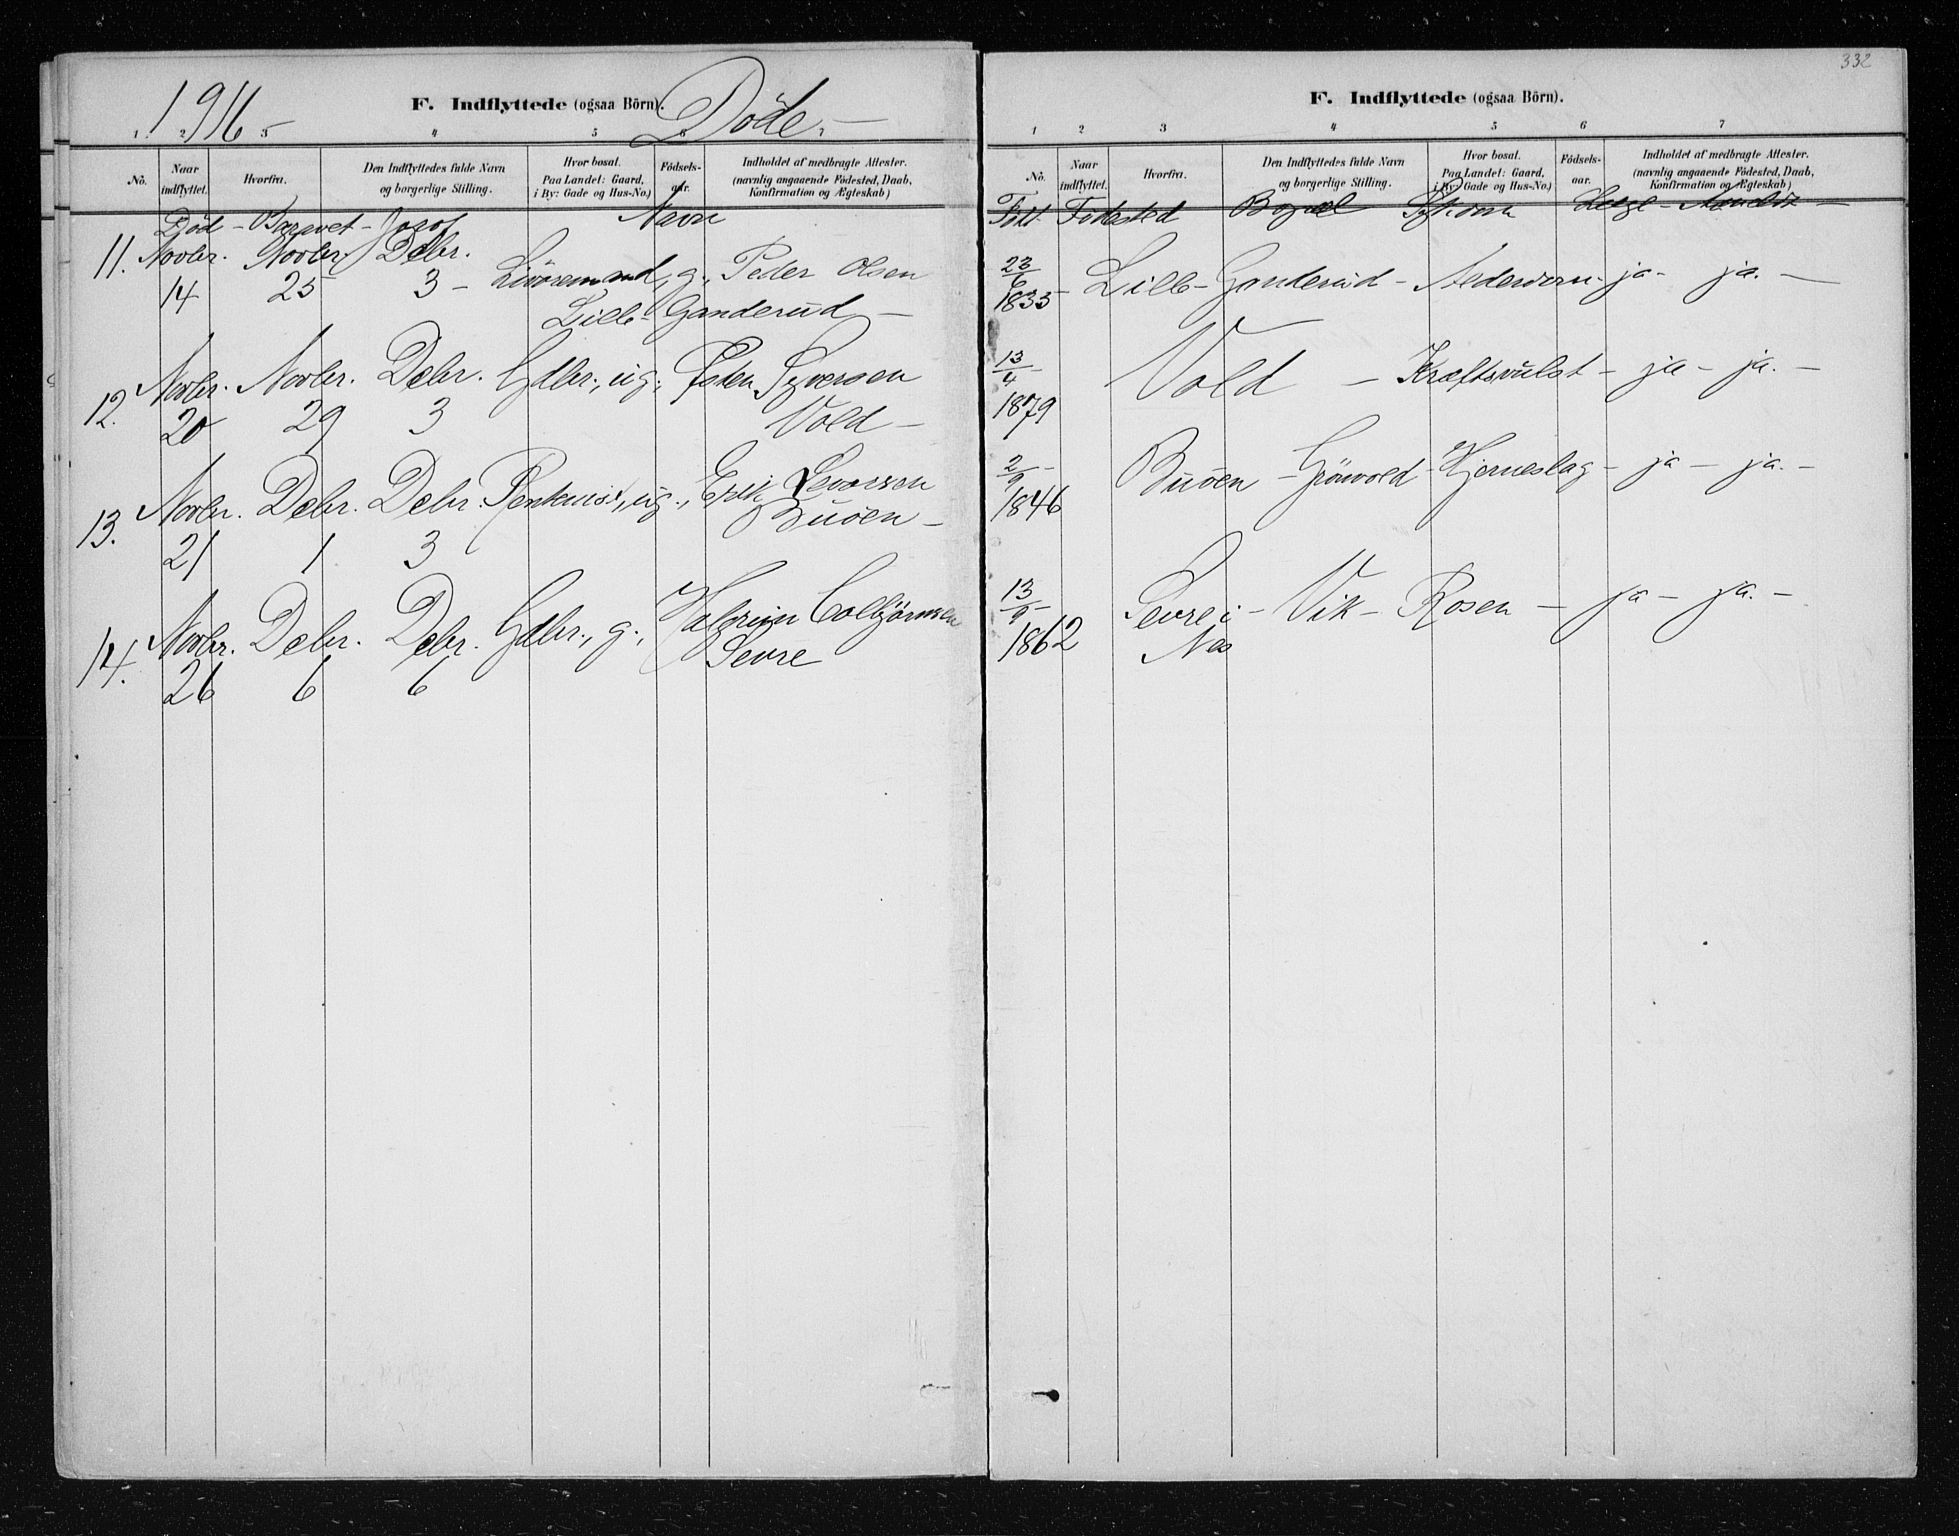 1916 –
F. Indflyttede (ogsaa Börn).
Döde –
1 2 3 4 5 6 7
No.
Naar indflyttet.
Hvorfra.
Den Indflyttedes fulde Navn og borgerlige Stilling.
Hvor bosat. Paa Landet: Gaard, i By: Gade og Hus-No.)
Födsels-aar.
Indholdet af medbragte Attester. (navnlig angaaende Födested, Daab, Konfirmation og Ægteskab)
Död – Begravet – Jord Navn
11. Novbr. Novbr. Debr.
14 25 3 – Livöremand, g., Peder Olsen
Lille-Ganderud –
12. Novbr. Novbr. Debr. Gdbr., ug., Peder Syversen
20 29 3 Vold –
13. Novbr. Debr. Debr. Penkunst, ug., Erik Sevorsen
21 1 3 Buöen –
14. Novbr. Debr. Debr. Gdbr., g., Halgrim Colbjörnsen
26 6 6 Sevre
332
F. Indflyttede (ogsaa Börn).
1 2 3 4 5 6 7
No.
Naar indflyttet.
Hvorfra.
Den Indflyttedes fulde Navn og borgerlige Stilling.
Hvor bosat. Paa Landet: Gaard, i By: Gade og Hus-No.)
Födsels-aar.
Indholdet af medbragte Attester. (navnlig angaaende Födested, Daab, Konfirmation og Ægteskab)
Födt. Födested Bopæl Sygdom Læge –
23/6 1833 – Lille-Ganderud – Alderdom – ja – ja. –
13/4 – 1879 Vold – Kræftsvulst – ja – ja. –
2/9 – 1846 Buöen – Grönvold – Hjerneslag – ja – ja. –
13/9 – 1862 Sevre i – Vik – Rosen – ja – ja. –
Nes